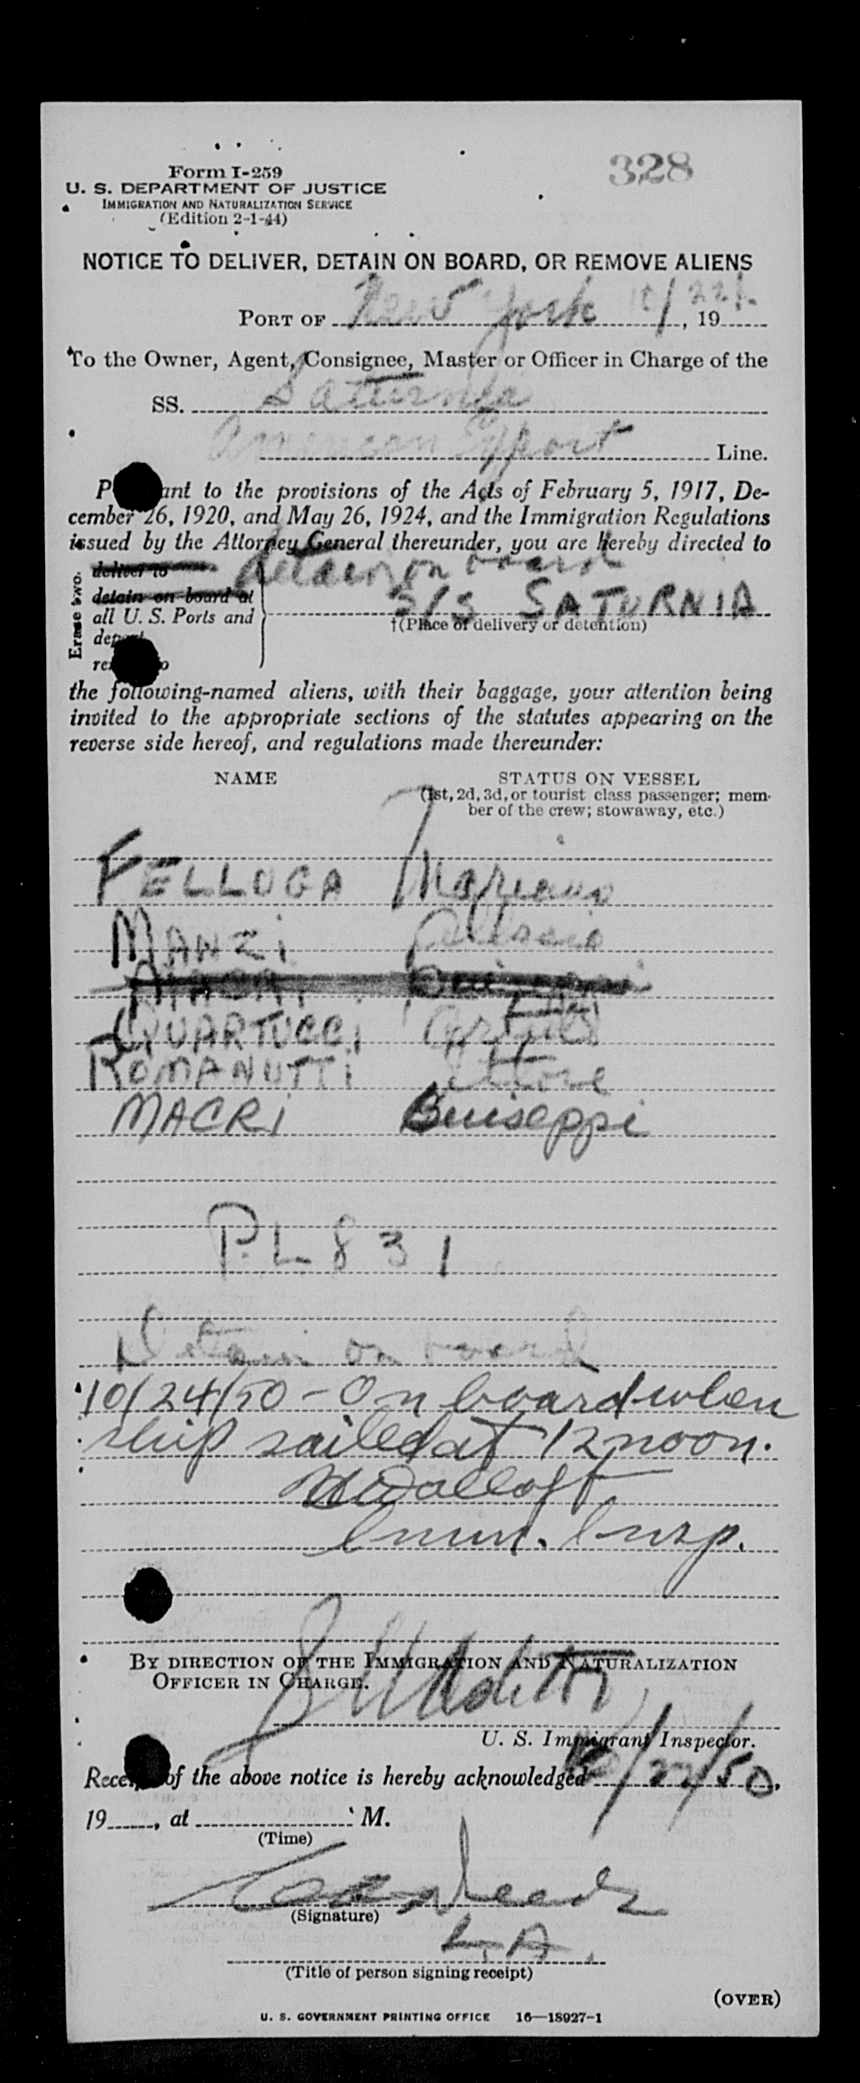 328
Form I-259
U. S. DEPARTMENT OF JUSTICE
IMMIGRATION AND NATURALIZATION SERVICE
(Edition 2-1-44)
NOTICE TO DELIVER, DETAIN ON BOARD, OR REMOVE ALIENS
PORT OF New York 10/22/, 19
To the Owner, Agent, Consignee, Master or Officer in Charge of the
SS. Saturnia
American Export Line.
ant to the provisions of the Acts of February 5, 1917, De-
cember 26, 1920, and May 26, 1924, and the Immigration Regulations
issued by the Attorney General thereunder, you are hereby directed to
Erase two.
deliver to detain on board
detain on board at S/S SATURNIA
all U. S. Ports and †(Place of delivery or detention)
the following-named aliens, with their baggage, your attention being
invited to the appropriate sections of the statutes appearing on the
reverse side hereof, and regulations made thereunder:
NAME STATUS ON VESSEL
(1st, 2d, 3d, or tourist class passenger; mem-
ber of the crew; stowaway, etc.)
FELLUGA Mariano
MANZI
QUARTUCCI
ROMANUTTI Ettore
MACRI Guiseppi
P.L 831
Detain on board
10/24/50 - On board when
ship sailed at 12 noon.
Imm. Insp.
BY DIRECTION OF THE IMMIGRATION AND NATURALIZATION
OFFICER IN CHARGE.
U. S. Immigrant Inspector.
Receipt of the above notice is hereby acknowledged 10/22/50,
19, at M.
(Time)
(Signature)
(Title of person signing receipt)
(OVER)
U. S. GOVERNMENT PRINTING OFFICE 16—18927-1